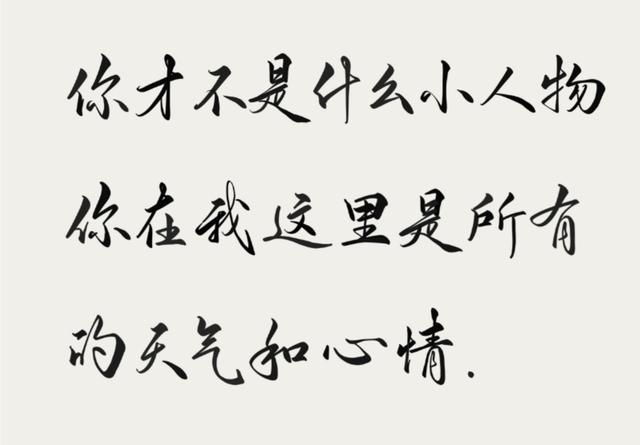 你才不是什么小人物
你在我这里是所有
的天气和心情.